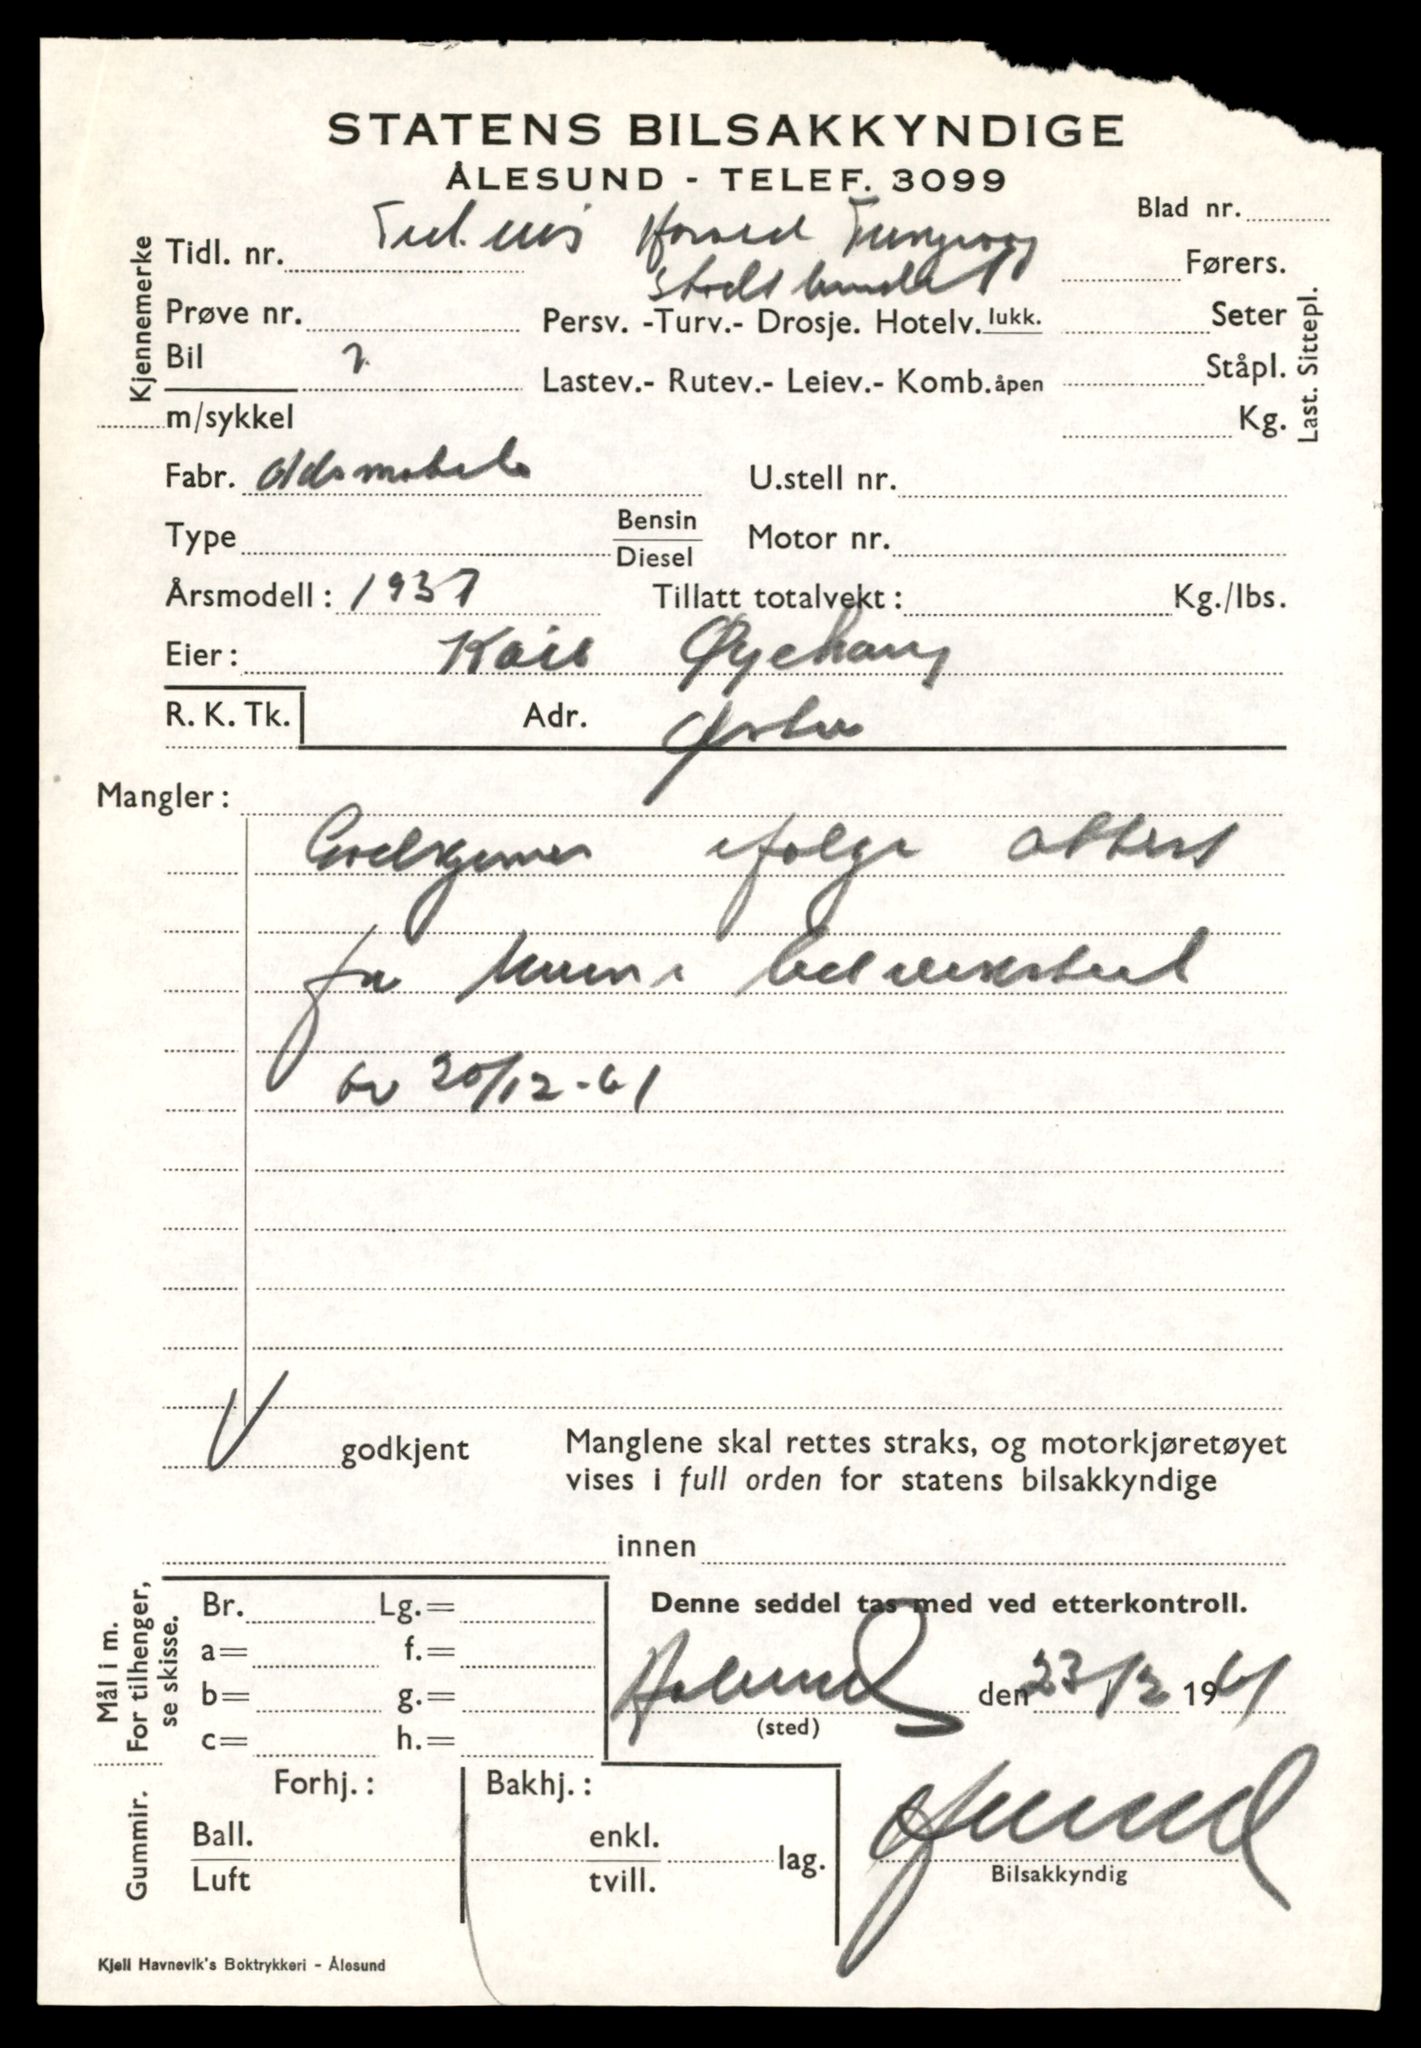 STATENS BILSAKKYNDIGE
ÅLESUND - TELEF. 3099
Blad nr.
Kjennemerke
Tidl. nr.
Førers.
Prøve nr.
Persv. -Turv.- Drosje. Hotelv. lukk.
Seter
Bil
Lastev.- Rutev.- Leiev.- Komb. åpen
Ståpl.
m/sykkel
Kg.
Last. Sittepl.
Fabr. Oldsmobile
U.stell nr.
Type
Bensin
Diesel
Motor nr.
Årsmodell : 1937
Tillatt totalvekt : Kg./lbs.
Eier : Kåre Øyehaug
R. K. Tk.
Adr. Ørsta
Mangler :
Godkjennes ifølge attest
fra bilverksted
av 20/12-61
godkjent
Manglene skal rettes straks, og motorkjøretøyet
vises i full orden for statens bilsakkyndige
innen
Mål i m.
For tilhenger,
se skisse.
Br. Lg.=
a= f.=
b= g.=
c= h.=
Denne seddel tas med ved etterkontroll.
Ålesund den 23/12 1961
(sted)
Gummir.
Forhj. : Bakhj. :
Ball. enkl.
lag.
Luft tvill.
Bilsakkyndig
Kjell Havnevik's Boktrykkeri - Ålesund